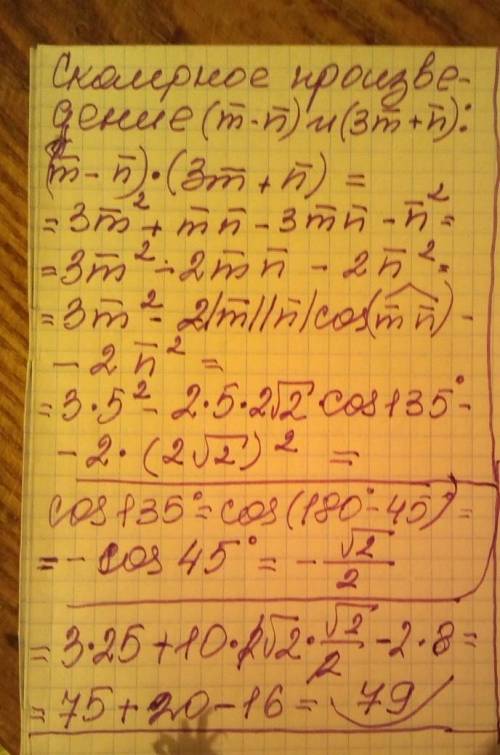 Скалярное произве-
дение (m̅-n̅) и (3m̅+n̅):
(m̅-n̅)·(3m̅+n̅) =
= 3m̅²+m̅n̅-3m̅n̅-n̅²=
=3m̅²-2m̅n̅ - 2n̅²=
=3m̅²-2|m̅||n̅|cos(m̅n̅)-
- 2n̅² =
=3·5²-2·5·2√2·cos135°-
-2·(2√2)² =
cos135°=cos(180°-45°)=
=-cos45°=-√2/2
=3·25+10·2√2·√2/2-2·8=
=75+20-16=79